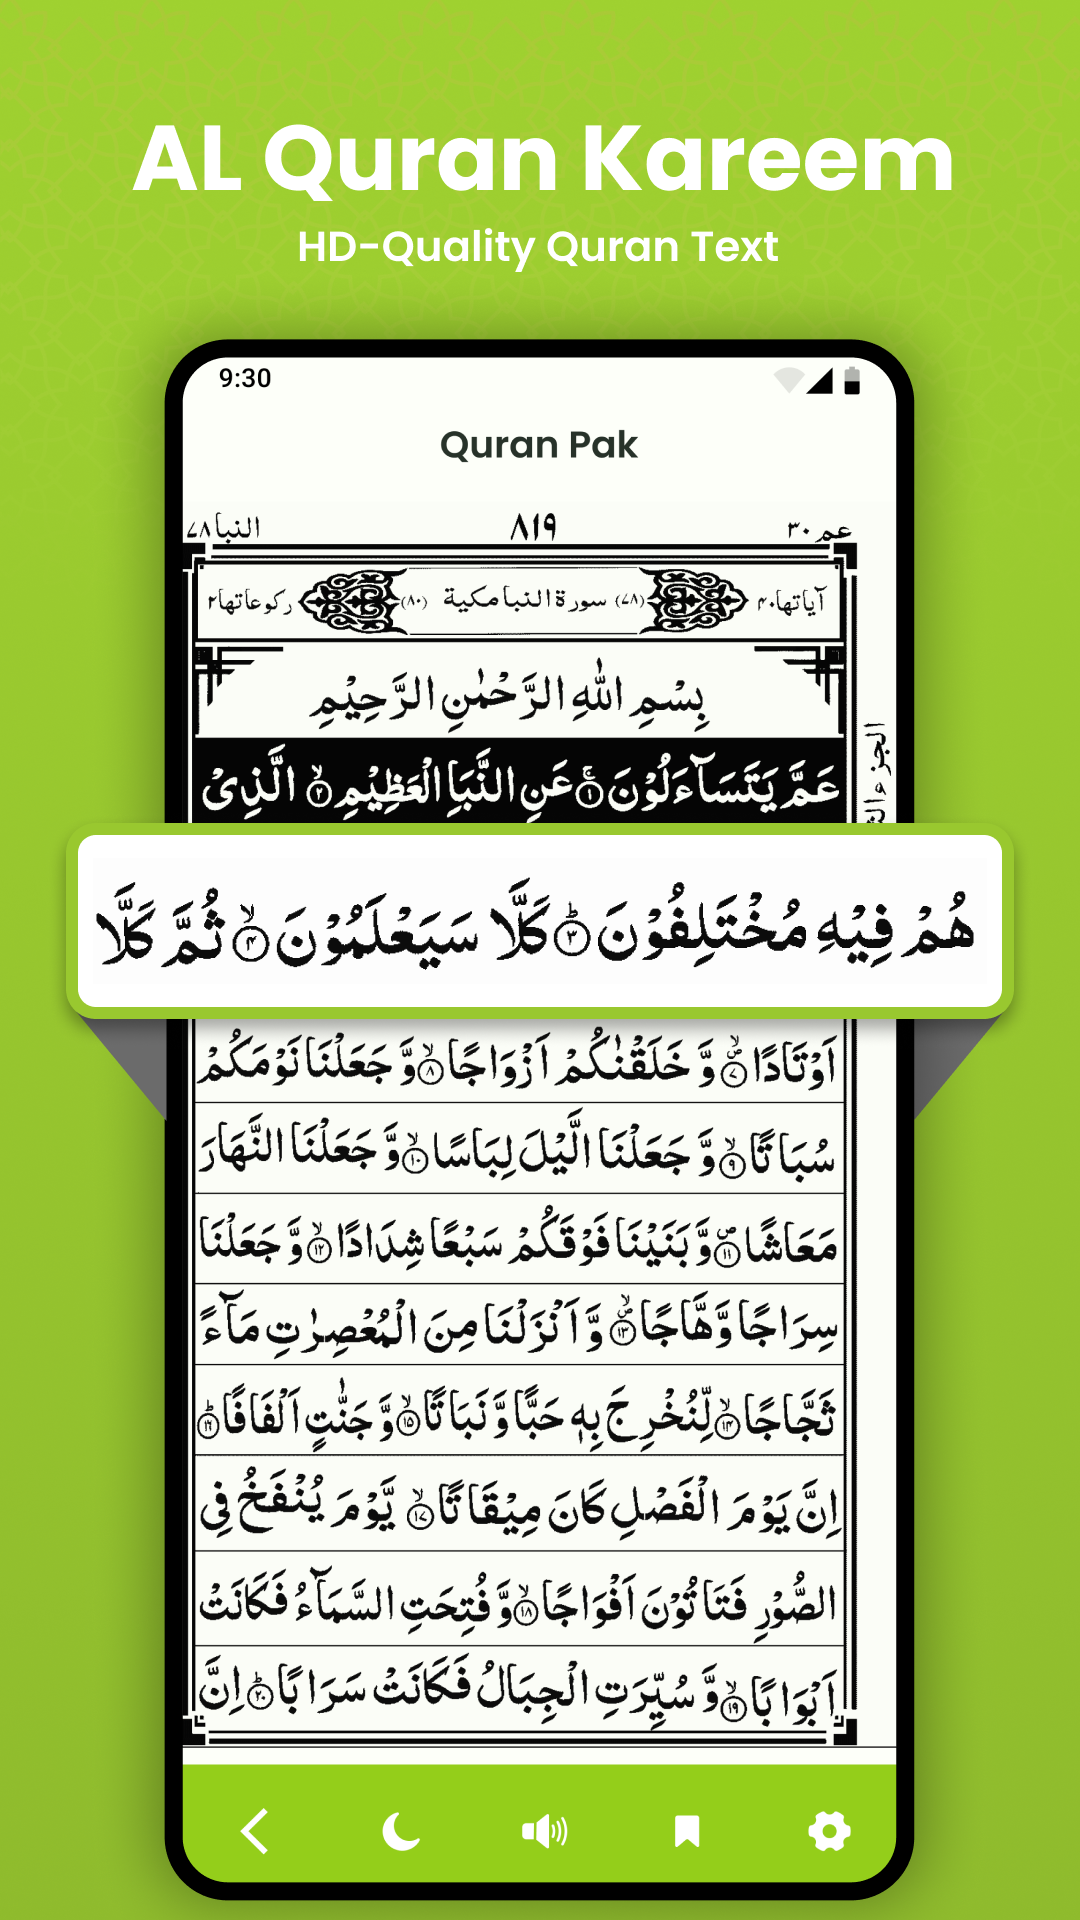 AL Quran Kareem
HD-Quality Quran Text
9:30
Quran Pak
عم ٣٠ ٨١٩ النبا ٧٨
آیاتها ٤٠ (٧٨) سورة النبا مكية (٨٠) ركوعاتها ٢
بِسْمِ اللّٰهِ الرَّحْمٰنِ الرَّحِيْمِ
عَمَّ يَتَسَآءَلُوْنَ ۚ﴿۱﴾ عَنِ النَّبَاِ الْعَظِيْمِ ۙ﴿۲﴾ الَّذِىْ
هُمْ فِيْهِ مُخْتَلِفُوْنَ ؕ﴿۳﴾ كَلَّا سَيَعْلَمُوْنَ ۙ﴿۴﴾ ثُمَّ كَلَّا
اَوْتَادًا ۪ۙ﴿۷﴾ وَّ خَلَقْنٰكُمْ اَزْوَاجًا ۙ﴿۸﴾ وَّ جَعَلْنَا نَوْمَكُمْ
سُبَاتًا ۙ﴿۹﴾ وَّ جَعَلْنَا الَّيْلَ لِبَاسًا ۙ﴿۱۰﴾ وَّ جَعَلْنَا النَّهَارَ
مَعَاشًا ۪﴿۱۱﴾ وَّ بَنَيْنَا فَوْقَكُمْ سَبْعًا شِدَادًا ۙ﴿۱۲﴾ وَّ جَعَلْنَا
سِرَاجًا وَّهَّاجًا ۪ۙ﴿۱۳﴾ وَّ اَنْزَلْنَا مِنَ الْمُعْصِرٰتِ مَآءً
ثَجَّاجًا ۙ﴿۱۴﴾ لِّنُخْرِجَ بِهٖ حَبًّا وَّ نَبَاتًا ۙ﴿۱۵﴾ وَّ جَنّٰتٍ اَلْفَافًا ؕ﴿۱۶﴾
اِنَّ يَوْمَ الْفَصْلِ كَانَ مِيْقَاتًا ۙ﴿۱۷﴾ يَّوْمَ يُنْفَخُ فِى
الصُّوْرِ فَتَاْتُوْنَ اَفْوَاجًا ۙ﴿۱۸﴾ وَّ فُتِحَتِ السَّمَآءُ فَكَانَتْ
اَبْوَابًا ۙ﴿۱۹﴾ وَّ سُيِّرَتِ الْجِبَالُ فَكَانَتْ سَرَابًا ؕ﴿۲۰﴾ اِنَّ